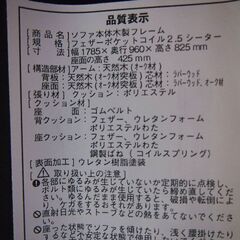 品質表示
[商品名]ソファ本体木製フレーム
フェザーポケットコイル2.5シーター
[寸法]幅1785×奥行960×高さ825mm
座面の高さ 425mm
[構造部材]アーム:天然木(オーク材)
背板:天然木(オーク材突板)芯材:ラバーウッド
座板:天然木(オーク材突板)芯材:ラバーウッド、オーク材
[張り材]クッション:ポリエステル
[クッション材]
座:ゴムベルト
背クッション:フェザー、ウレタンフォーム
ポリエステルわた
座クッション:フェザー、ウレタンフォーム
ポリエステルわた
鋼製ばね(コイルスプリング)
[表面加工]ウレタン樹脂塗装
取り扱い上の注意
各部にゆるみがないか定期的に点検し、
ボルト類にゆるみがありましたら締め直しして
ください。ゆるみがあると、破損や転倒によ
り、ケガをするおそれがあります。
直射日光やストーブなどの熱をあてないでくださ
い。
座った状態でソファを傾けたり、